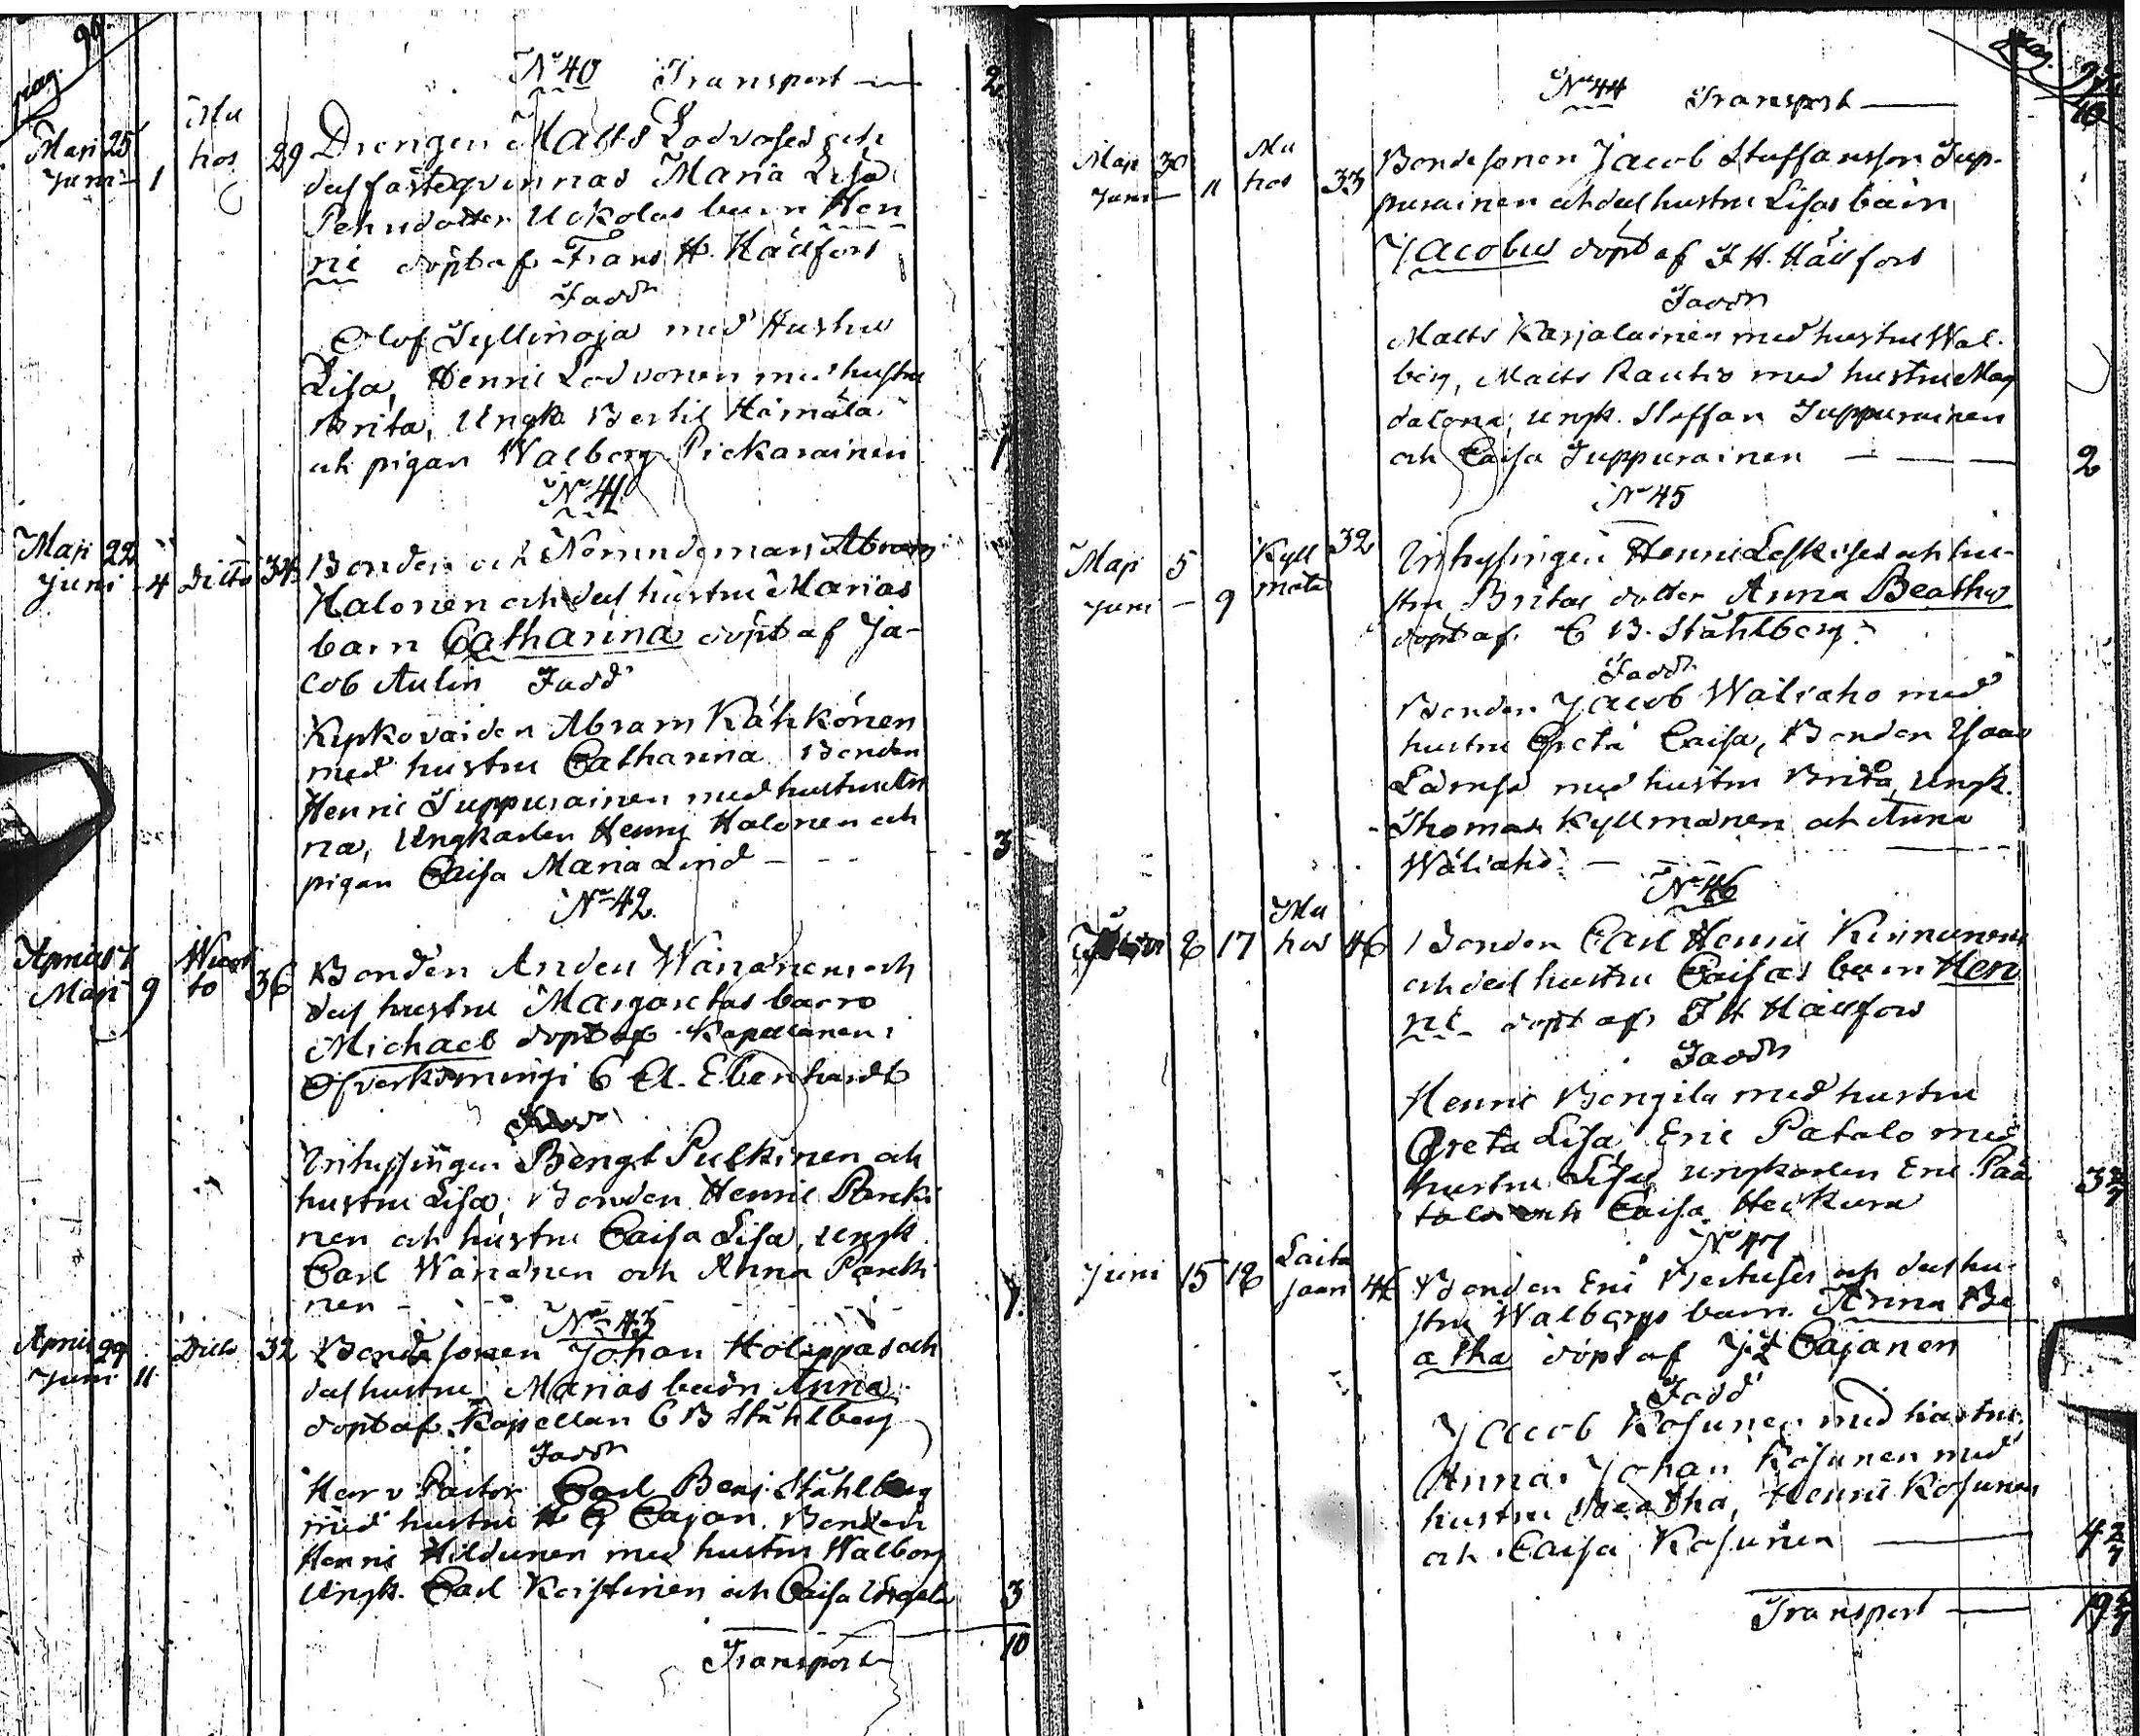 pag. 90.
No 40 Transport — 2
Maji 25 Mu 29 Drengen Matts Lodvoses och
Juni — 1 hos dess fästeqvinnas Maria Lisa
Pehrsdotter Uokolas barn Hen
ni döpt af Frans H. Hällfors
Fadd
Olof Jyllinoja med Hustru
Lisa, Henric Lodvonen med hustru
Brita, Ungk. Bertil Hämälä
och pigan Walborg Pickarainen 1
No 41.
Maji 22 Bonden och Nämndeman Abram
Juni - 4 Ditto 34 Halonen och dess hustru Marias
barn Catharina döpt af Ja-
cob Aulin Fadd
Kyrkovärden Abram Kähkönen
med hustru Catharina Bonden
Henric Juppurainen med hustru An
na, Ungkarlen Henric Halonen och
pigan Caisa Maria Lind — 3
No 42.
April 7 Wuot Bonden Anders Wänänens och
Maji 9 to 36 dess hustru Margaretas barn
Michael döpt af Kapellanen i
Öfverkiimingi C A. Eberhardt
Fadd
Inhyssingen Bengt Pulkinen och
hustru Lisa, Bonden Henric Parcki
nen och hustru Caisa Lisa, ungk.
Carl Wänänen och Anna Parcki
nen - 1.
No 43
April 29 Ditto 32 Bondesonen Johan Holappas och
Juni 11 dess hustru Marias barn Anna
döpt af Kapellan C B Ståhlberg
Fadd
Herr Pastor Carl Benj. Ståhlberg
med hustru H G Cajan. Bonden
Henric Hildunen med hustru Walborg
Ungk. Carl Keistinen och Caisa 3
Transport 10
pag.
No 44 Transport — 10
Maji 30 Mu 33 Bondesonen Jacob Staffansson Jup-
Juni — 11 hos purainen och dess hustru Lisas barn
Jacobus döpt af F H. Hällfors
Fadd
Matts Karjalainen med hustru Wal-
borg, Matts Rautio med hustru Mag
dalena, ungk. Staffan Juppurainen
och Caisa Juppurainen — 2
No 45
Maji 5 Kyll 32 Inhyssingen Henric Leskises och hu-
Juni — 9 mälä stru Britas dotter Anna Beatha
döpt af C B. Ståhlberg.
Fadd
Bonden Jacob Wäliaho med
hustru Greta Caisa, Bonden Isaac
Lämsä med hustru Brita, Ungk.
Thomas Kyllmänen och Anna
Wäliaho. —
No 46
6 17 Mu 46 Bonden Carl Henric Kinnunens
hos och dess hustru Caisas barn Hen
ni döpt af F H Hällfors
Fadd
Henric Bongila med hustru
Greta Lisa, Eric Patalo med
hustru Lisa, ungkarlen Eric Paa
talo och Caisa Heikura
No 47
Juni 15 18 Laita Bonden Eric Bertuses och dess hu-
saari stru Walborgs barn Anna Be
atha döpt af Cajanen
Fadd
Jacob Kosunen med hustru
Anna, Johan Kosunen med
hustru Beatha, Henric Kosunen
och Caisa Kosunen —
Transport —